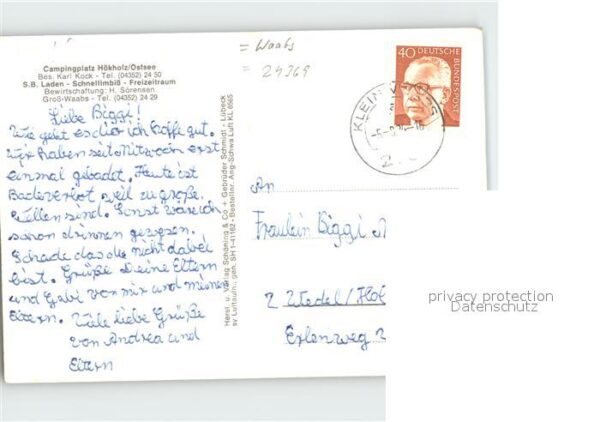 Campingplatz Hökholz/Ostsee
Bes. Karl Kock - Tel. (04352) 24 50
S.B. Laden - Schnellimbiß - Freizeitraum
Bewirtschaftung: H. Sörensen
Groß-Waabs - Tel. (04352) 24 29
= Waabs
= 24369
40 DEUTSCHE
BUNDESPOST
KLEIN
Liebe Biggi!
Wie geht es dir ich hoffe gut.
Wir haben seit Mitwoch erst
einmal gebadet. Heute ist
Badeverbot weil zu große
Wellen sind. Sonst wäre ich
schon drinnen gewesen.
Schade das du nicht dabei
bist. Grüße Deine Eltern
und Gabi von mir und meinen
Eltern. Viele liebe Grüße
von Andrea und
Eltern
Herst. u. Verlag Schöning & Co + Gebrüder Schmidt - Lübeck
SH 1-4162 - Bestellnr. Ang-Schwa Luft KL 6565
An
Fräulein Biggi
2 Wedel/Hol
Erlenweg 2
privacy protection
Datenschutz